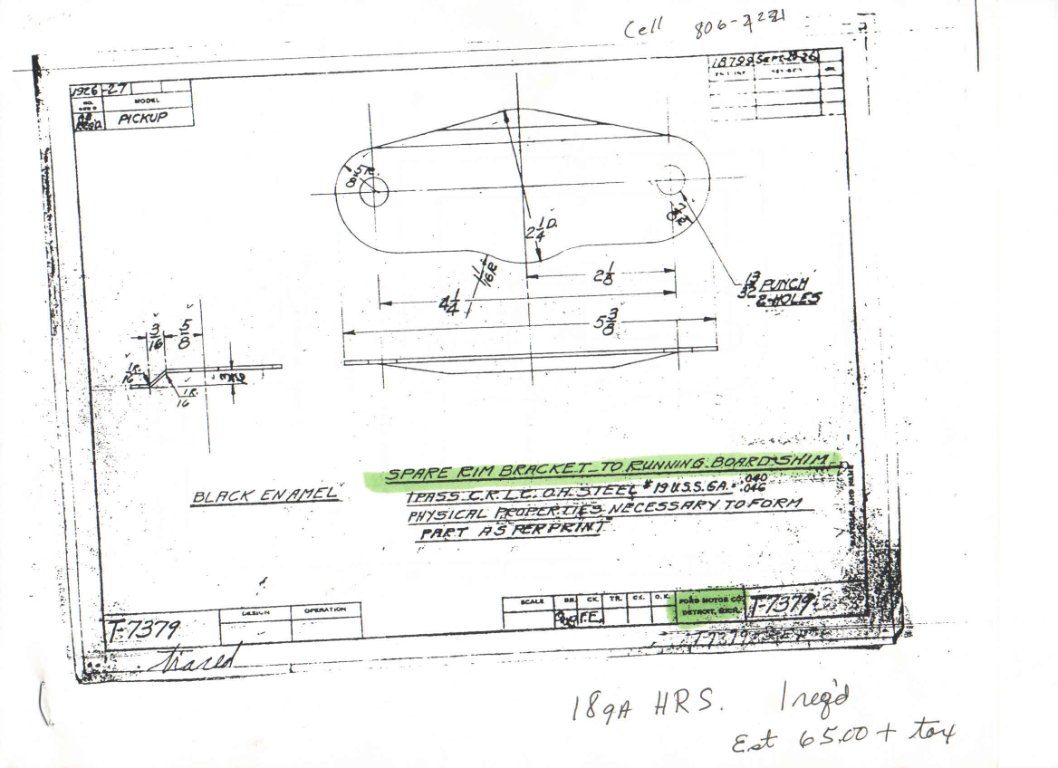 Cell 806-4221
1926-27
NO. REQ'D MODEL
PICKUP
18799 SEPT-29-26
2 1/4 D.
1 1/16 R
2 1/8
4 1/4
5 3/8
13/32 PUNCH
2-HOLES
3/16 5/8
1/16 R.
1/16 R.
3/16
BLACK ENAMEL
SPARE RIM BRACKET TO RUNNING BOARD SHIM
1 PASS. C.R. L.C. O.H. STEEL #19 U.S.S. GA. .040
.046
PHYSICAL PROPERTIES NECESSARY TO FORM
PART AS PER PRINT
T-7379
DESIGN OPERATION
SCALE DR. CK. TR. CK. O.K.
F.E.
FORD MOTOR CO.
DETROIT, MICH.
T-7379
traced
T-7379
18 gA HRS. 1 req'd
Est 65.00 + tax